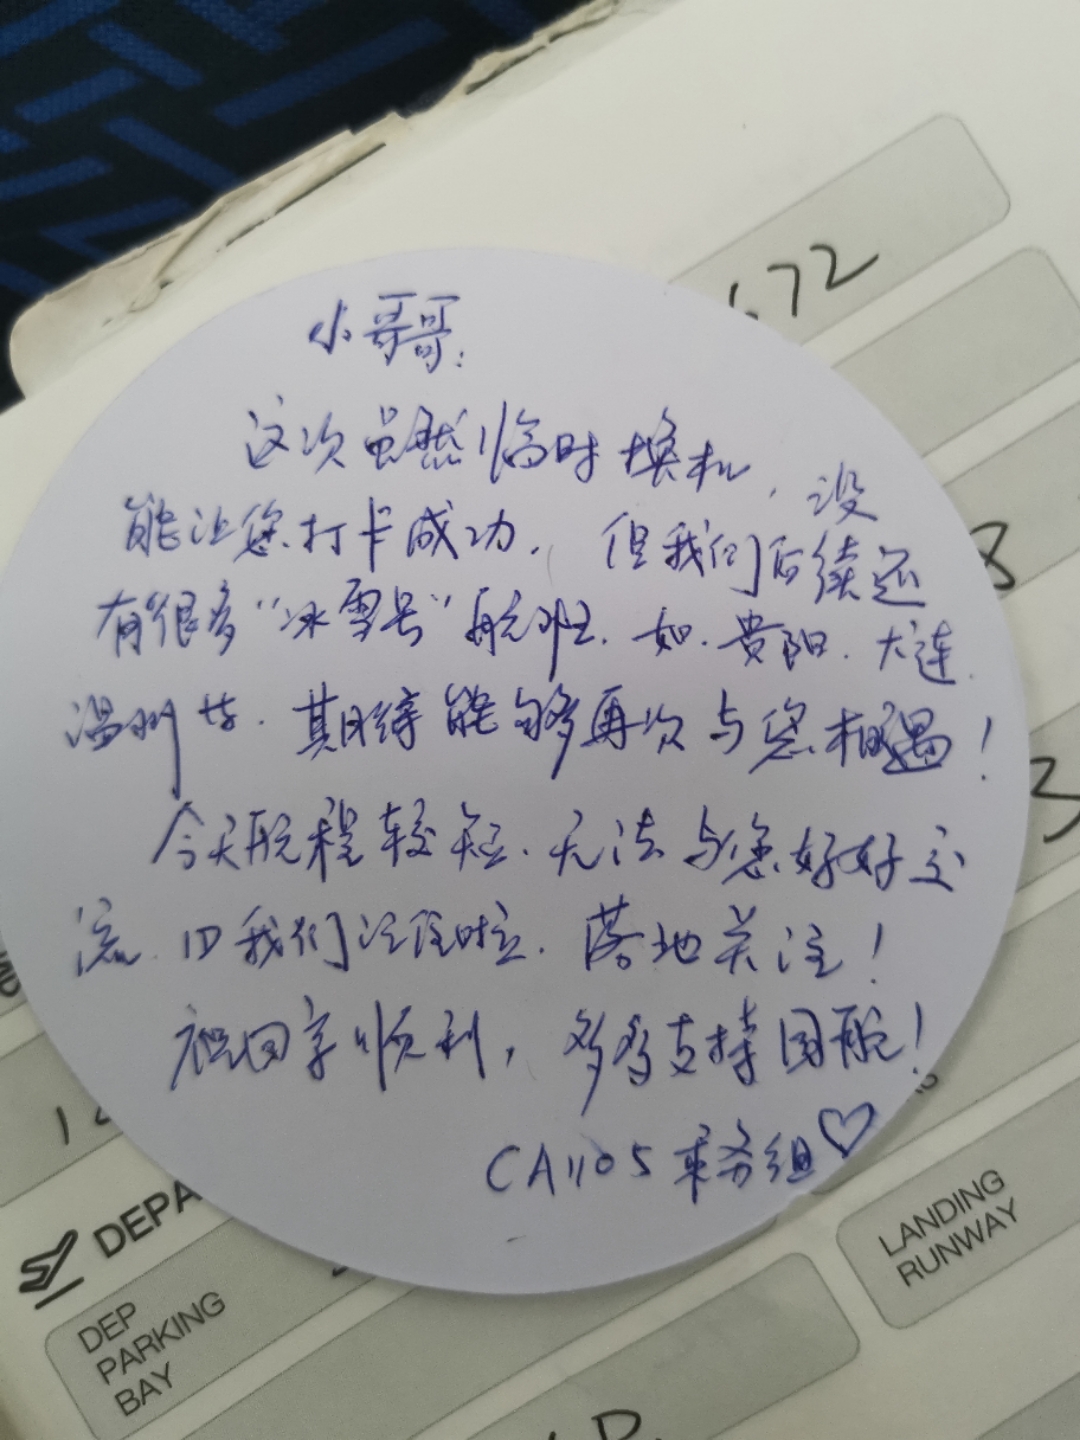 672
小哥哥:
这次虽然临时换机,没
能让您打卡成功,但我们后续还
8
有很多“冰雪号”航班.如.贵阳.大连.
温州等.期待能够再次与您相遇!
3
今天航程较短.无法与您好好交
流.ID我们记住啦.落地关注!
祝回京顺利,多多支持国航!
CA1105乘务组♡
DEPA
LANDING
RUNWAY
DEP
PARKING
BAY